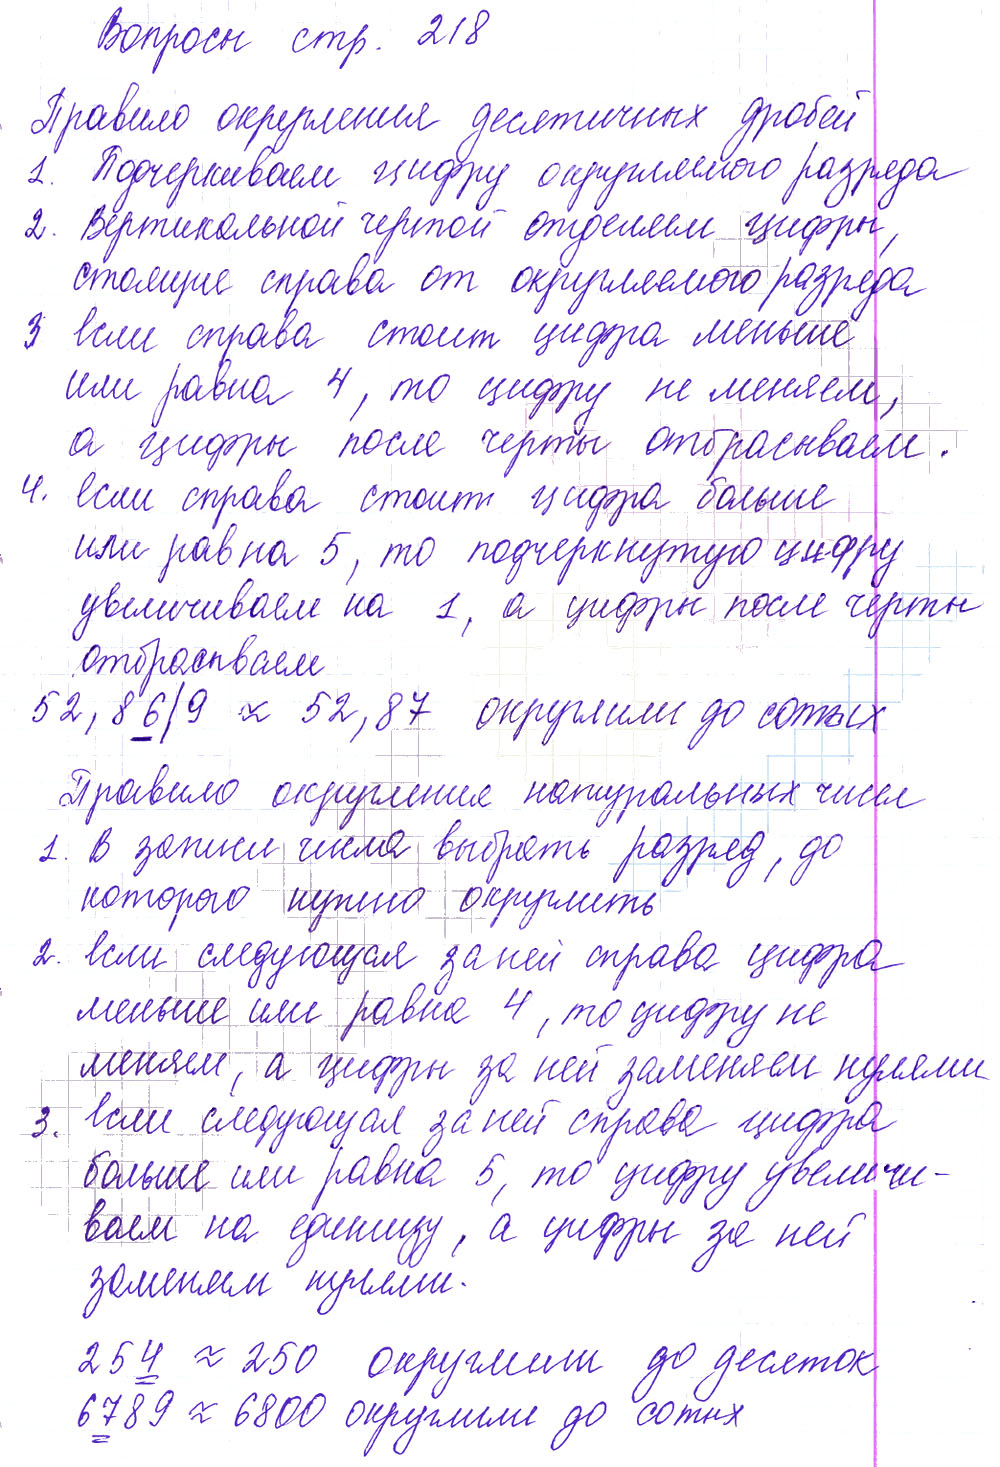 Вопросы стр. 218
Правило округления десятичных дробей
1. Подчеркиваем цифру округляемого разряда
2. Вертикальной чертой отделяем цифры,
стоящие справа от округляемого разряда
3 если справа стоит цифра меньше
или равна 4, то цифру не меняем,
а цифры после черты отбрасываем.
4. если справа стоит цифра больше
или равна 5, то подчеркнутую цифру
увеличиваем на 1, а цифры после черты
отбрасываем
52,86|9 ≈ 52,87 округлили до сотых
Правило округления натуральных чисел
1. В записи числа выбрать разряд, до
которого нужно округлить
2. если следующая за ней справа цифра
меньше или равна 4, то цифру не
меняем, а цифры за ней заменяем нулями
3. если следующая за ней справа цифра
больше или равна 5, то цифру увеличи-
ваем на единицу, а цифры за ней
заменям нулями.
254 ≈ 250 округлили до десяток
6789 ≈ 6800 округлили до сотых